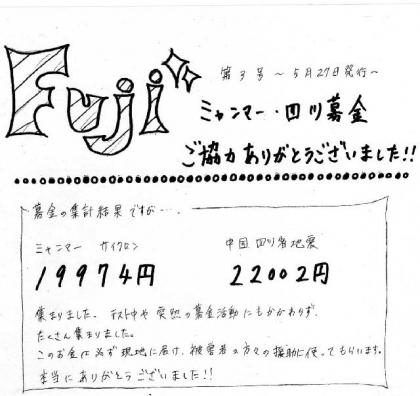 Fuji
第3号 ～5月27日発行～
ミャンマー・四川募金
ご協力ありがとうございました!!
募金の集計結果ですが…
ミャンマー サイクロン 中国 四川省地震
19974円 22002円
集まりました。テスト中や突然の募金活動にもかかわらず、
たくさん集まりました。
このお金は必ず現地に届け、被害者の方々の援助に使ってもらいます。
本当にありがとうございました!!